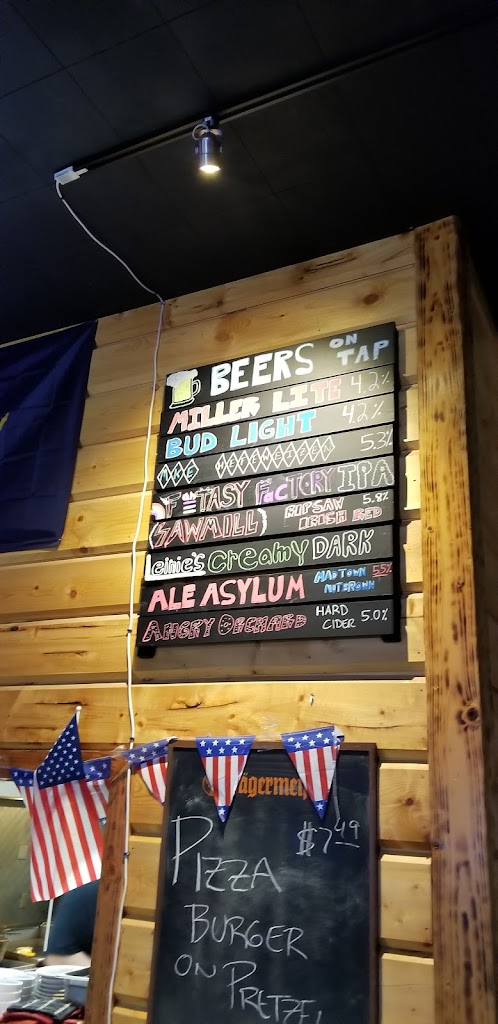 BEERS ON TAP
MILLER LITE 4.2%
BUD LIGHT 4.2%
MKE HEFEWEIZEN 5.3%
FANTASY FACTORY IPA
(SAWMILL) RIPSAW IRISH RED 5.8%
Leinie's CREAMY DARK
ALE ASYLUM MADTOWN NUTBROWN 5.5%
ANGRY ORCHARD HARD CIDER 5.0%
Jägermei
$7.49
PIZZA
BURGER
ON PRETZEL